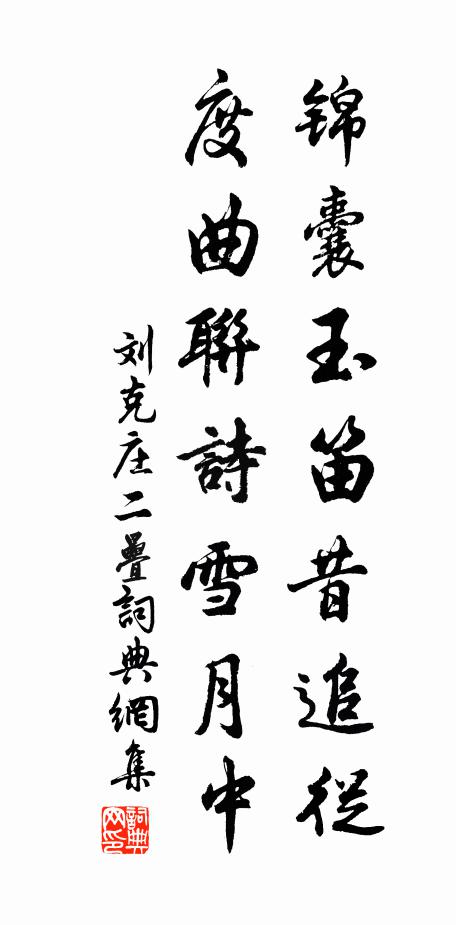 锦囊玉笛昔追從
度曲聯詩雪月中
刘克庄二疊詞典網集
詞典網印